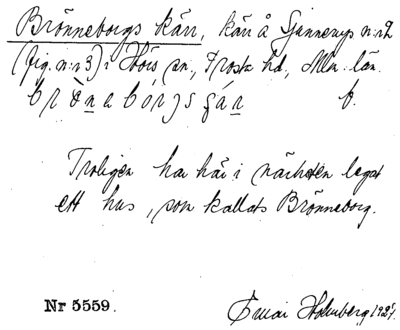 Brönneborgs kärr, kärr å Gunnerup n:r 2
(fig. n:r 3) i Höös sn, Frosta hd, Mlm. län.
Troligen har här i närheten legat
ett hus, som kallats Brönneborg.
Nr 5559.
Holmberg 1927.